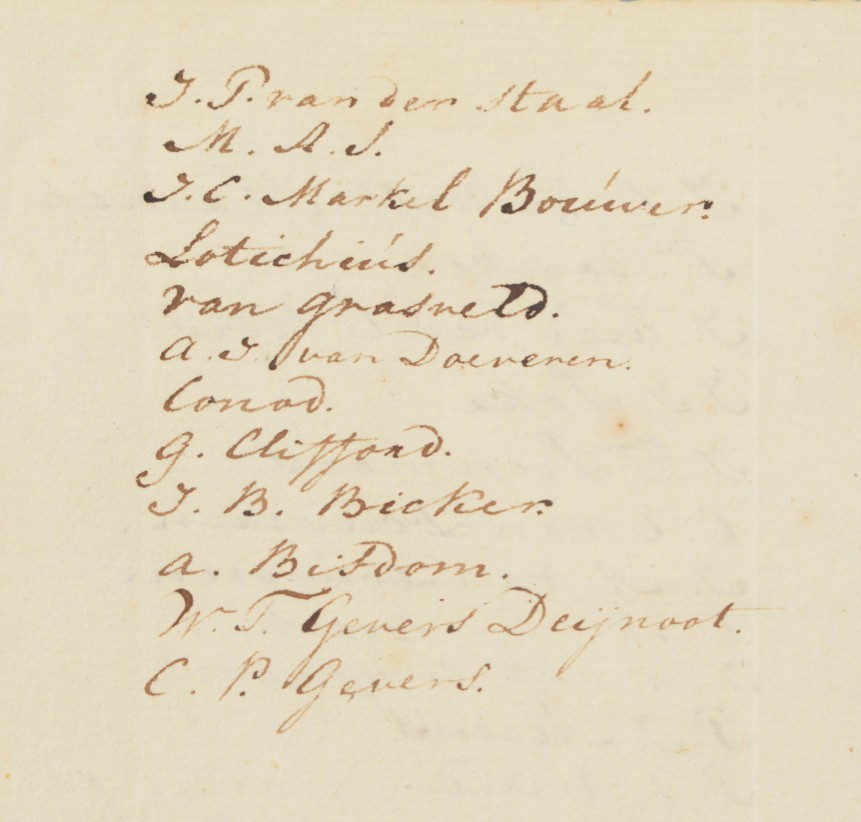 J. P. van der Staal.
M. A. S.
J. C. Markel Bouwer.
Lotichius.
van grasveld.
A. J. van Doeveren.
Conod.
G. Clifford.
J. B. Bicker.
A. Bisdom.
W. T. Gevers Deijnoot.
C. P. Gevers.